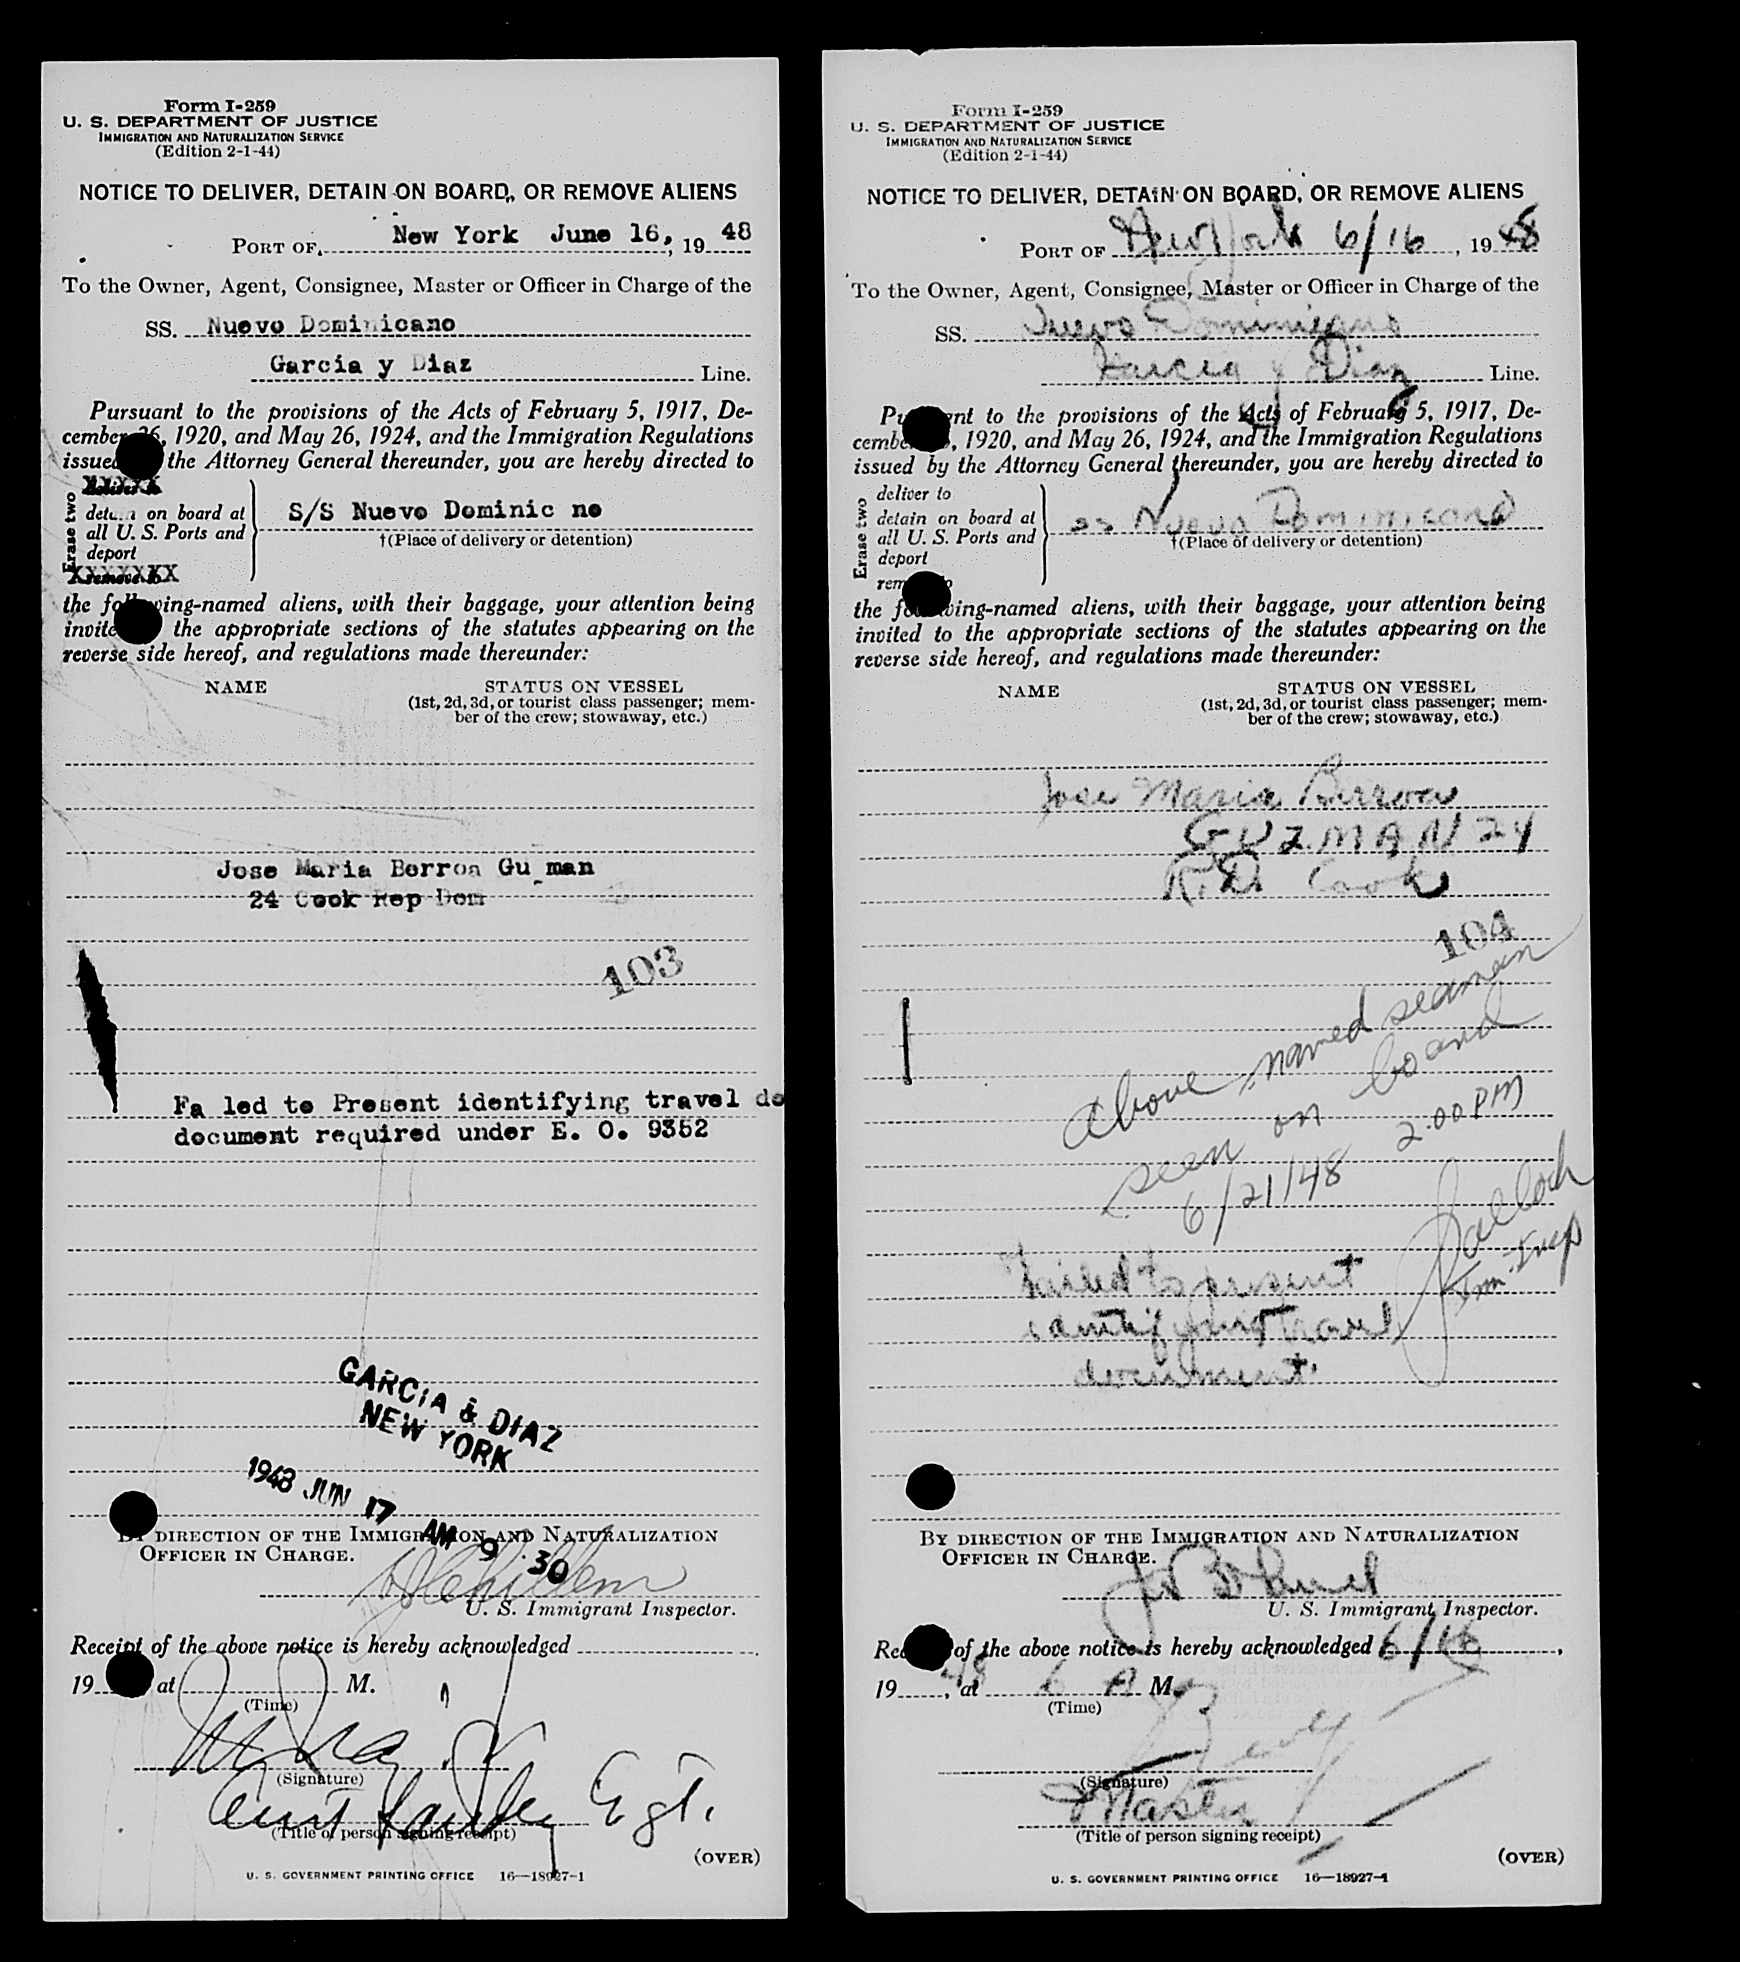 Form I-259
U. S. DEPARTMENT OF JUSTICE
IMMIGRATION AND NATURALIZATION SERVICE
(Edition 2-1-44)
NOTICE TO DELIVER, DETAIN ON BOARD, OR REMOVE ALIENS
PORT OF New York June 16, 19 48
To the Owner, Agent, Consignee, Master or Officer in Charge of the
SS. Nuevo Dominicano
Garcia y Diaz Line.
Pursuant to the provisions of the Acts of February 5, 1917, De-
cember 26, 1920, and May 26, 1924, and the Immigration Regulations
issued the Attorney General thereunder, you are hereby directed to
Erase two
XXXXX
detain on board at
all U. S. Ports and
deport
XXXXXXX
S/S Nuevo Dominic no
†(Place of delivery or detention)
the following-named aliens, with their baggage, your attention being
invited the appropriate sections of the statutes appearing on the
reverse side hereof, and regulations made thereunder:
NAME
STATUS ON VESSEL
(1st, 2d, 3d, or tourist class passenger; mem-
ber of the crew; stowaway, etc.)
Jose Maria Berroa Gu man
24 Cook Rep Dom
103
Fa led to Present identifying travel do
document required under E. O. 9352
GARCIA & DIAZ
NEW YORK
1948 JUN 17 AM 9:30
BY DIRECTION OF THE IMMIGRATION AND NATURALIZATION
OFFICER IN CHARGE.
U. S. Immigrant Inspector.
Receipt of the above notice is hereby acknowledged
19 at M.
(Time)
(Signature)
Agt.
(Title of person signing receipt)
(OVER)
U. S. GOVERNMENT PRINTING OFFICE 16—18927-1
Form I-259
U. S. DEPARTMENT OF JUSTICE
IMMIGRATION AND NATURALIZATION SERVICE
(Edition 2-1-44)
NOTICE TO DELIVER, DETAIN ON BOARD, OR REMOVE ALIENS
PORT OF New York 6/16, 19 48
To the Owner, Agent, Consignee, Master or Officer in Charge of the
SS. Nuevo Dominicano
Garcia y Diaz Line.
Pursuant to the provisions of the Acts of February 5, 1917, De-
cember , 1920, and May 26, 1924, and the Immigration Regulations
issued by the Attorney General thereunder, you are hereby directed to
Erase two
deliver to
detain on board at
all U. S. Ports and
deport
remove to
SS Nuevo Dominicano
†(Place of delivery or detention)
the following-named aliens, with their baggage, your attention being
invited to the appropriate sections of the statutes appearing on the
reverse side hereof, and regulations made thereunder:
NAME
STATUS ON VESSEL
(1st, 2d, 3d, or tourist class passenger; mem-
ber of the crew; stowaway, etc.)
Jose Maria Berroa
GUZMAN 24
R.D. Cook
104
Above named seaman
seen on board
6/21/48 2:00 PM
Imm. Insp
Failed to present
identifying travel
document.
BY DIRECTION OF THE IMMIGRATION AND NATURALIZATION
OFFICER IN CHARGE.
U. S. Immigrant Inspector.
Receipt of the above notice is hereby acknowledged 6/16,
19 48, at 6 A M.
(Time)
(Signature)
Master
(Title of person signing receipt)
(OVER)
U. S. GOVERNMENT PRINTING OFFICE 16—18927-1